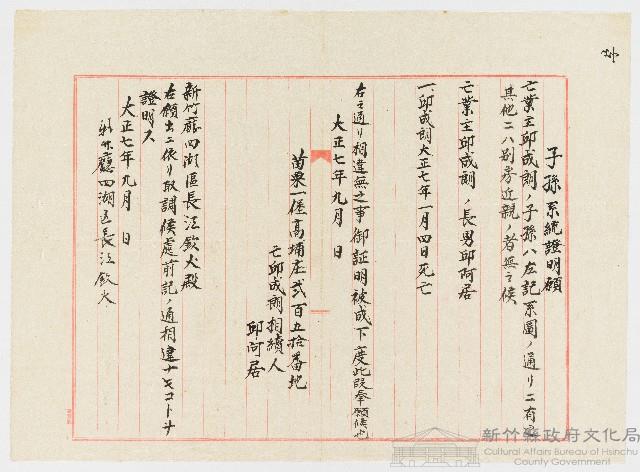 子孫系統證明願
亡業主邱成朗ノ子孫ハ左記系圖ノ通リニ有之
其他ニハ別房近親ノ者無之候
亡業主邱成朗ノ長男邱阿居
一、邱成朗大正七年一月四日死亡
右之通リ相違無之事御証明被成下度此段奉願候也
大正七年九月 日
苗栗一堡高埔庄貳百五拾番地
亡邱成朗相續人
邱阿居
新竹廳四湖區長江欽火殿
右願出ニ依リ取調候處前記ノ通相違ナキコトヲ
證明ス
大正七年九月 日
新竹廳四湖區長江欽火
新竹縣政府文化局
Cultural Affairs Bureau of Hsinchu
County Government